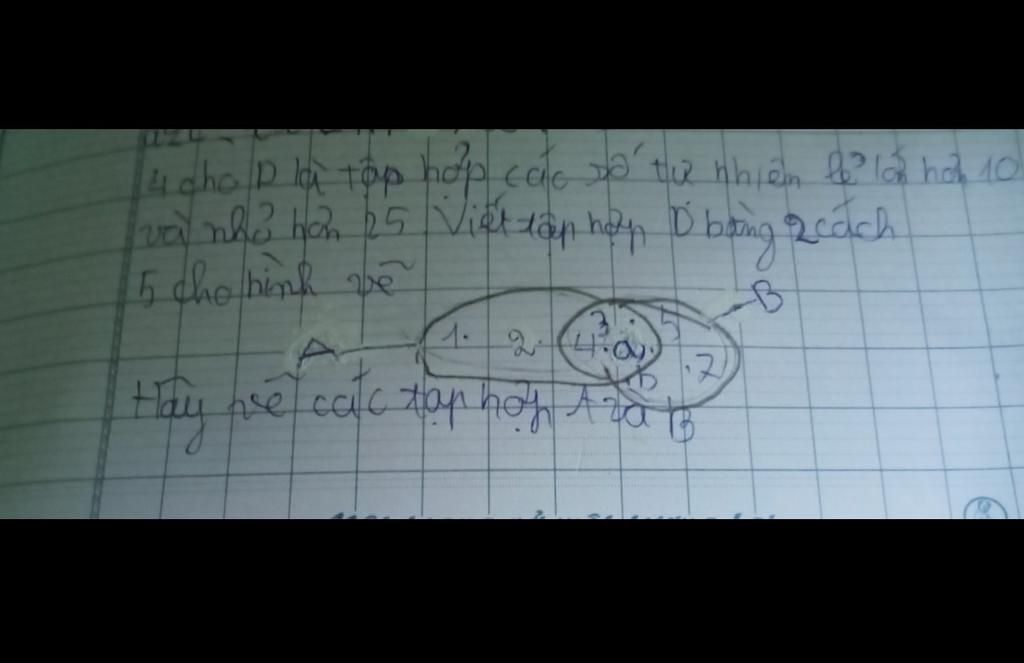 4 cho D là tập hợp các số tự nhiên lẻ lớn hơn 10
và nhỏ hơn 25 Viết tập hợp D bằng 2 cách
5 cho hình vẽ
A 1. 2. 3. 4. a. 5 b .7 B
Hãy vẽ các tạp hợp A và B